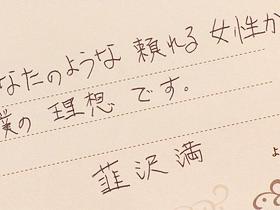 なたのような 頼れる 女性が
僕の 理想 です。
韮沢満
よ